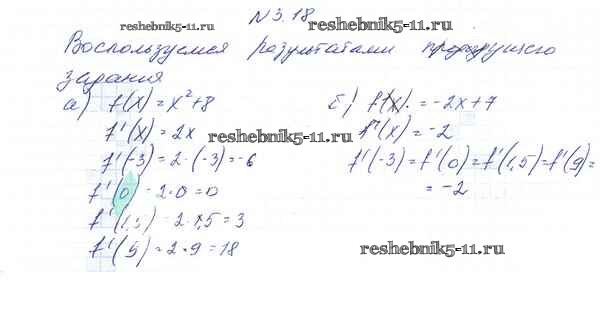 N 3.18
reshebnik5-11.ru
Воспользуемся результатами предыдущего
задания
reshebnik5-11.ru
а) f(x) = x²+8
f'(x) = 2x
f'(-3) = 2·(-3) = -6
f'(0) = 2·0 = 0
f'(1,5) = 2·1,5 = 3
f'(9) = 2·9 = 18
б) f(x) = -2x+7
f'(x) = -2
f'(-3) = f'(0) = f'(1,5) = f'(9) =
= -2
reshebnik5-11.ru
reshebnik5-11.ru